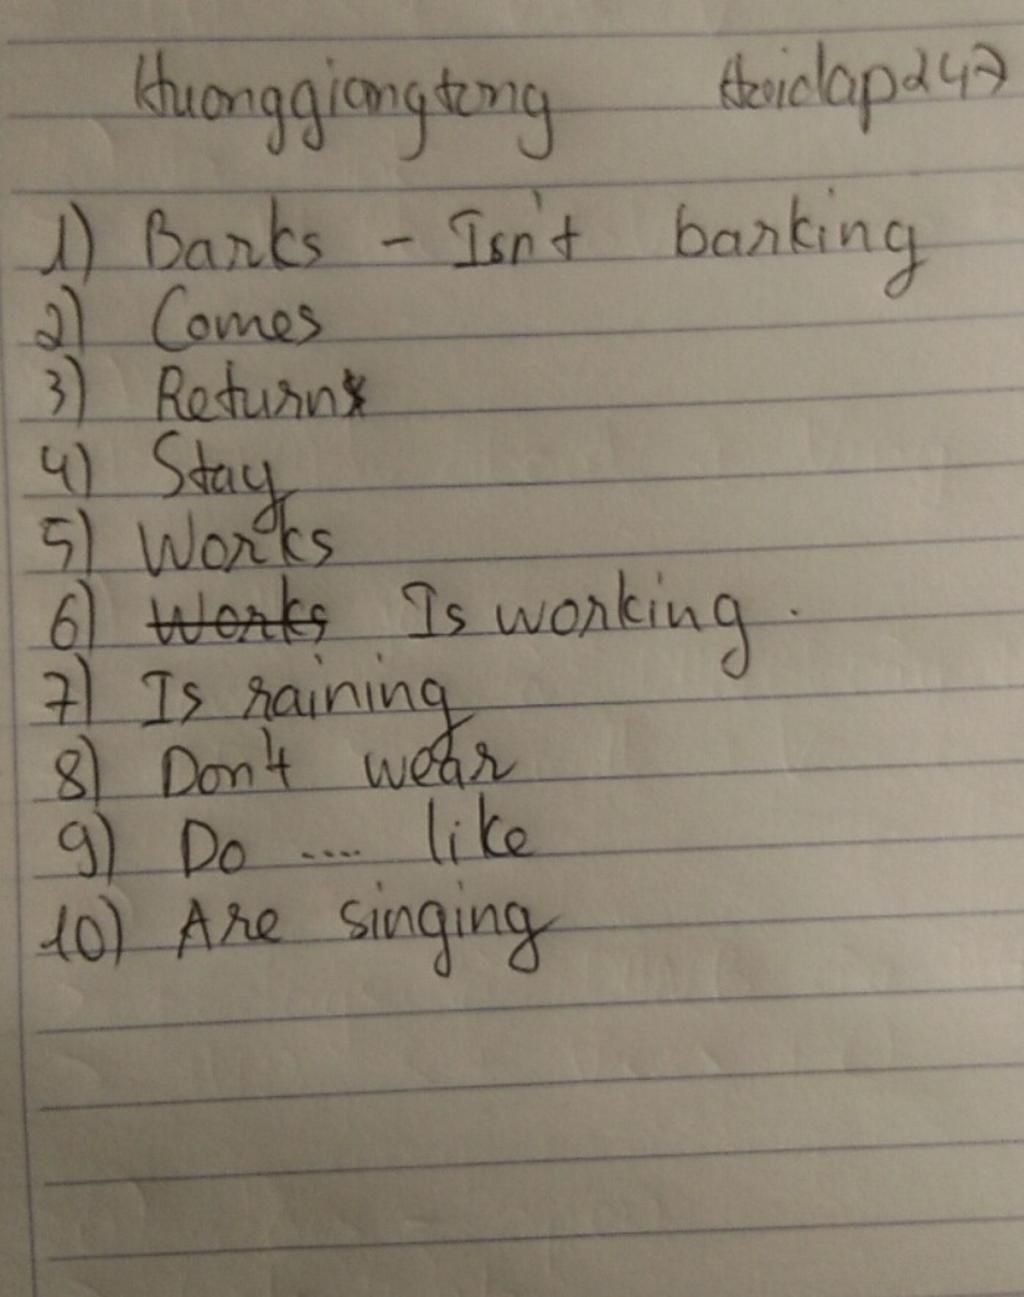 Huonggiangtong Hoidap247
1) Barks - Isn't barking
2) Comes
3) Return
4) Stay
5) Works
6) Works Is working.
7) Is raining
8) Don't wear
9) Do .... like
10) Are singing